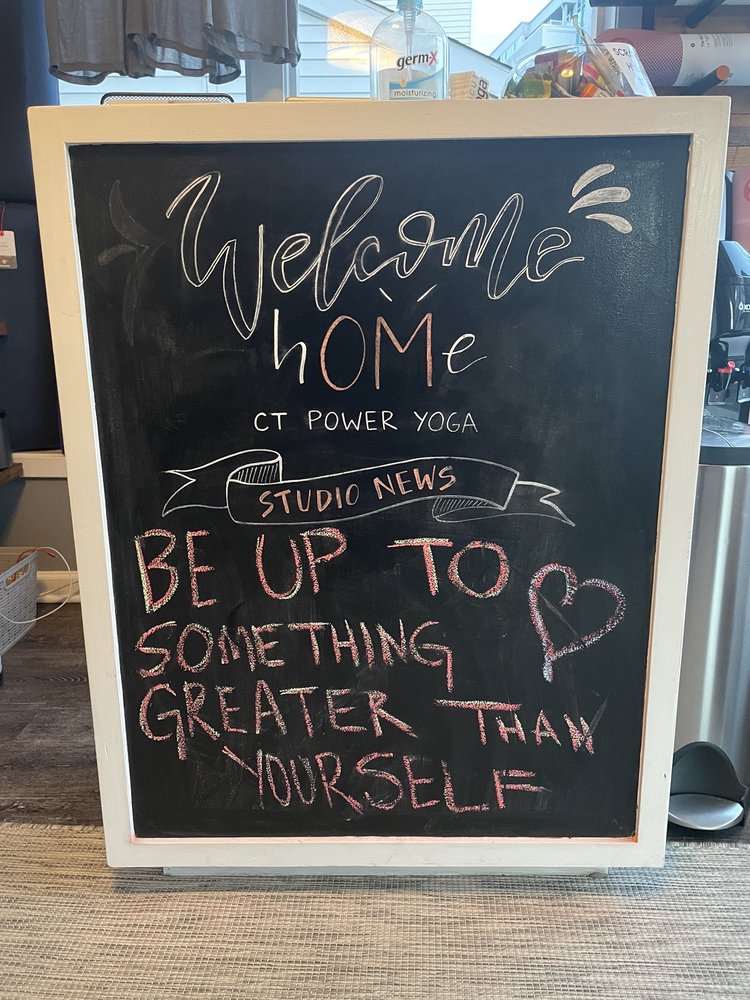 germ-X
moisturizing
Welcome
hOMe
CT POWER YOGA
STUDIO NEWS
BE UP TO
SOMETHING
GREATER THAN
YOURSELF